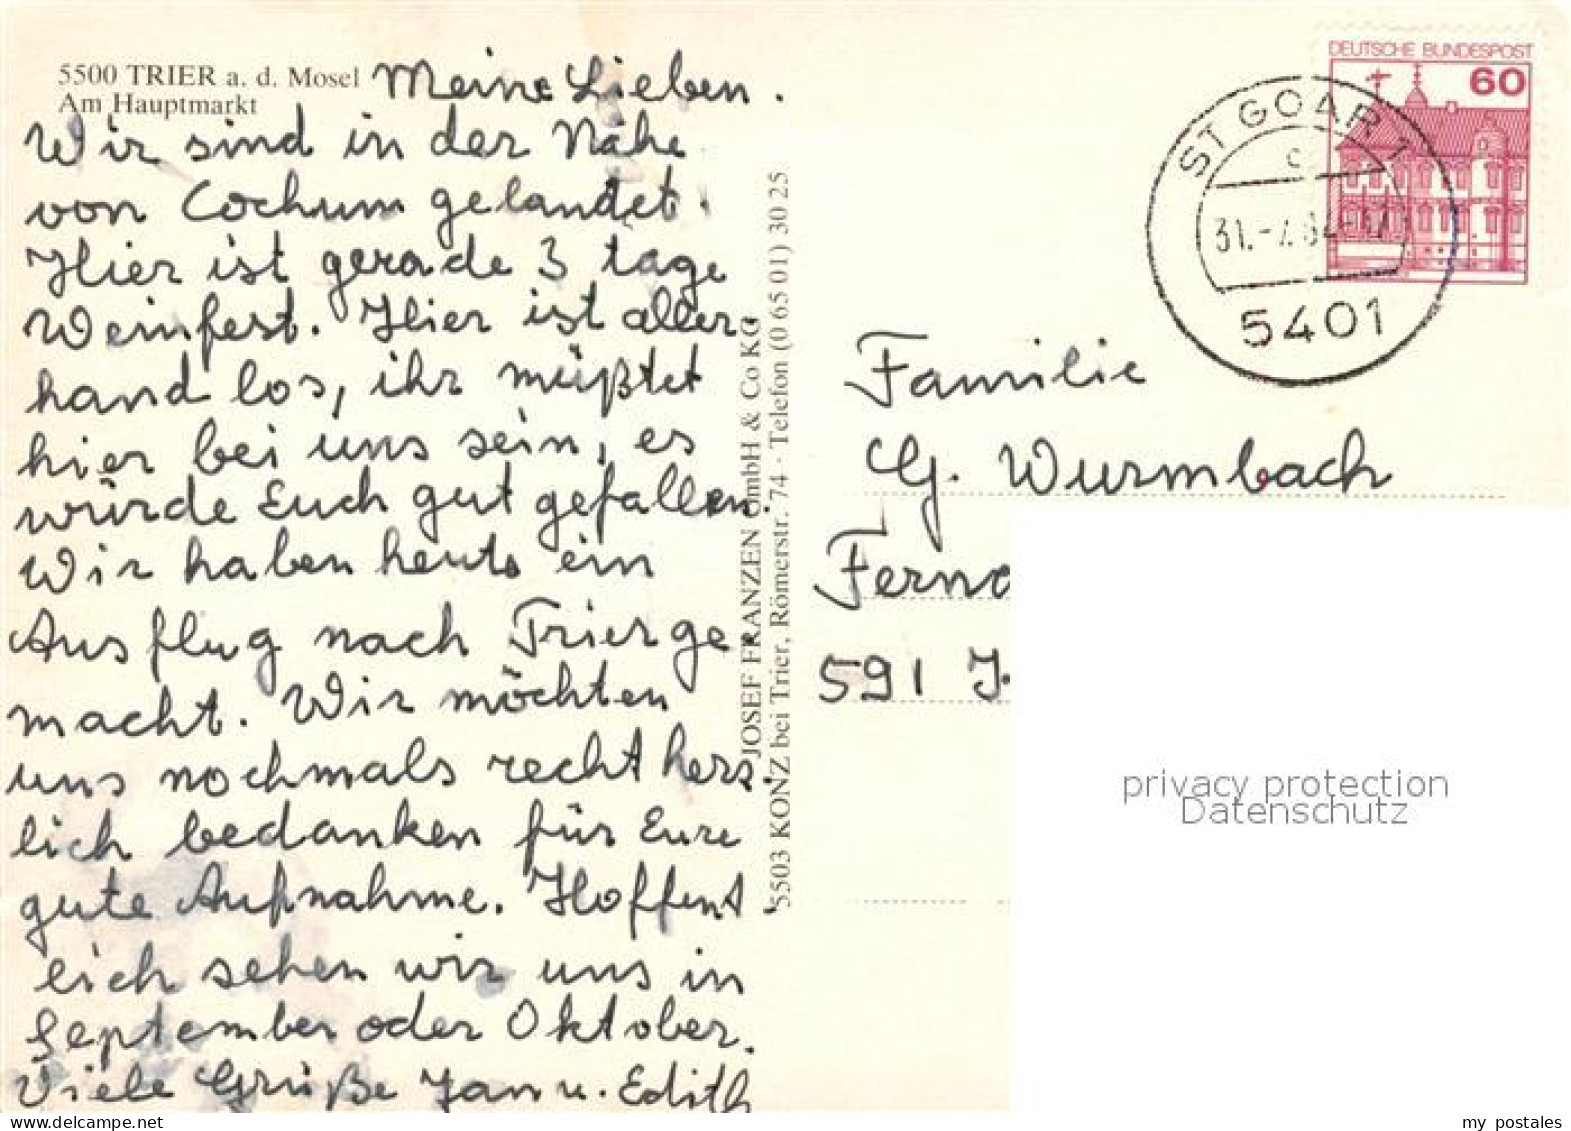 5500 TRIER a. d. Mosel
Am Hauptmarkt
Meine Lieben.
Wir sind in der Nähe
von Cochum gelandet.
Hier ist gerade 3 tage
Weinfest. Hier ist aller-
hand los, ihr müßtet
hier bei uns sein, es
würde Euch gut gefallen.
Wir haben heute ein
Ausflug nach Trier ge-
macht. Wir möchten
uns nochmals recht herz-
lich bedanken für Eure
gute Aufnahme. Hoffent-
lich sehen wir uns in
September oder Oktober.
Viele Grüße Jan u. Edith
JOSEF FRANZEN GmbH & Co KG
5503 KONZ bei Trier, Römerstr. 74 · Telefon (0 65 01) 30 25
DEUTSCHE BUNDESPOST
60
ST GOAR 1
c
31.-7.84-17
5401
Familie
G. Wurmbach
Fernd
591 J.
privacy protection
Datenschutz
www.delcampe.net
my_postales